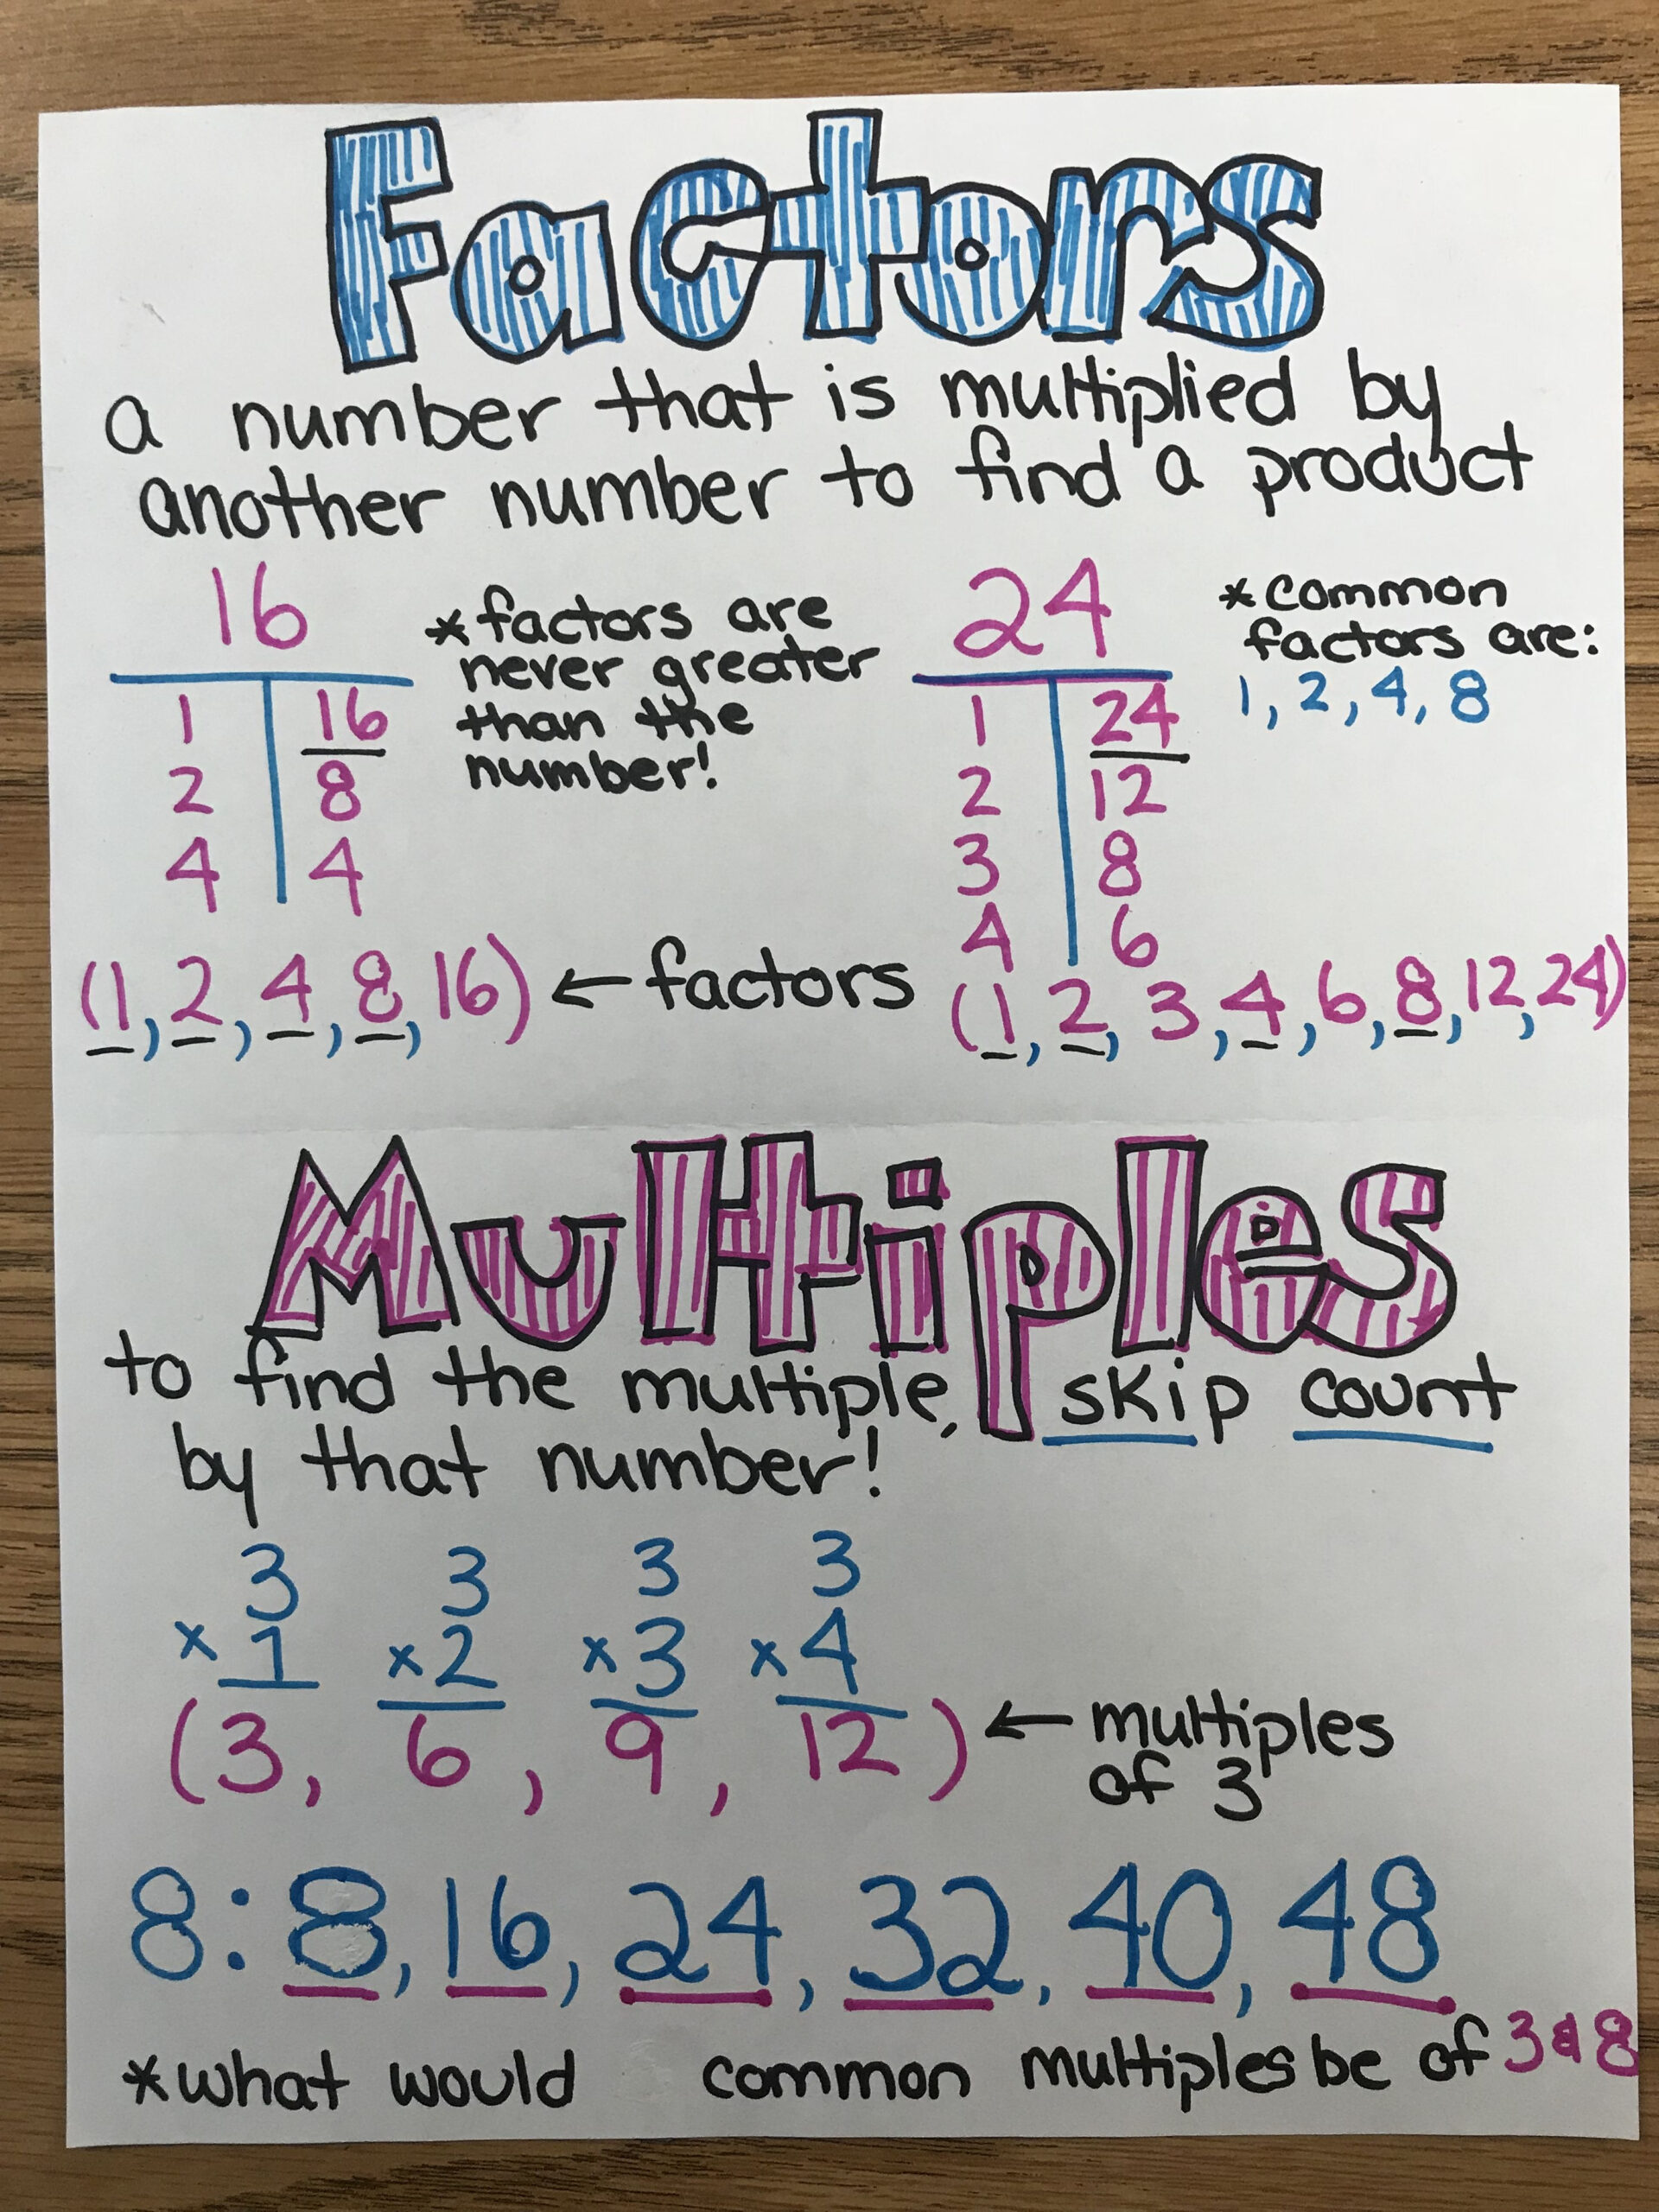 Factors
a number that is multiplied by
another number to find a product
16
1 16
2 8
4 4
(1, 2, 4, 8, 16) ← factors
* factors are
never greater
than the
number!
24
1 24
2 12
3 8
4 6
(1, 2, 3, 4, 6, 8, 12, 24)
* common
factors are:
1, 2, 4, 8
Multiples
to find the multiple, skip count
by that number!
3 3 3 3
×1 ×2 ×3 ×4
(3, 6, 9, 12) ← multiples
of 3
8: 8, 16, 24, 32, 40, 48
* what would common multiples be of 3 & 8